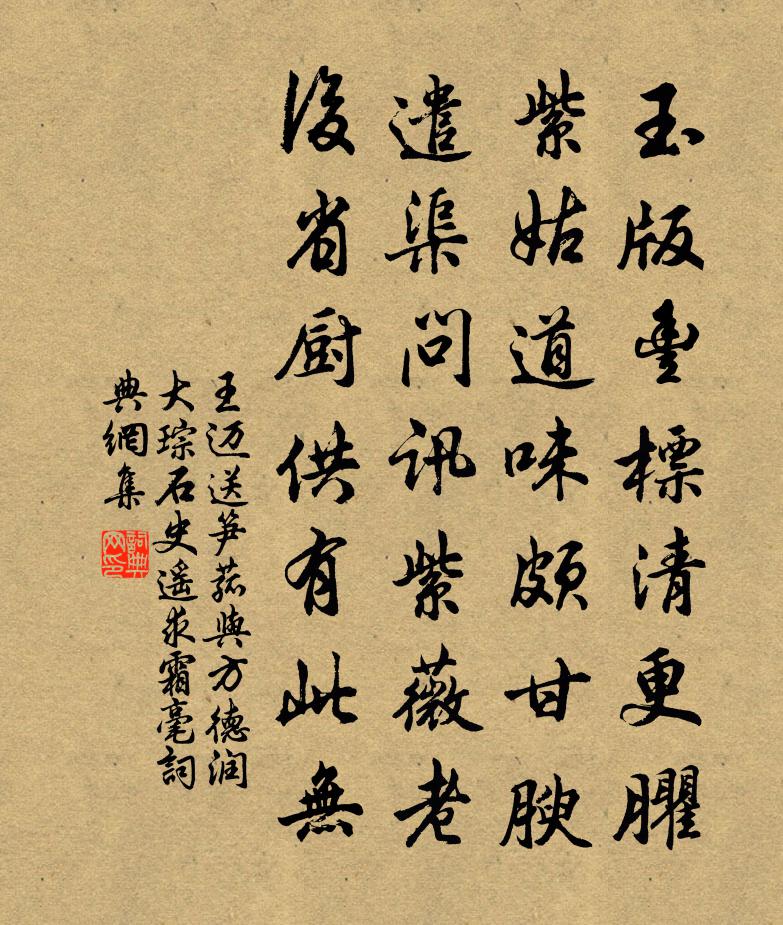 玉版豊標清更臞
紫姑道味頗甘腴
遣渠問訊紫薇老
後省厨供有此無
王迈送笋菰與方德润
大琮石史遥求霜毫詞
典網集
詞典网印